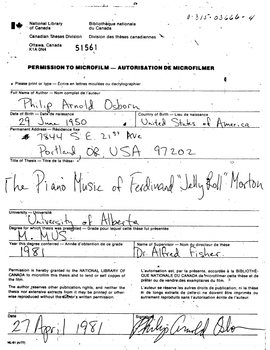 0-315-03666-4
National Library of Canada
Bibliothèque nationale du Canada
Canadian Theses Division
Division des thèses canadiennes
Ottawa, Canada
K1A 0N4
51561
PERMISSION TO MICROFILM — AUTORISATION DE MICROFILMER
• Please print or type — Écrire en lettres moulées ou dactylographier
Full Name of Author — Nom complet de l'auteur
Philip Arnold Osborn
Date of Birth — Date de naissance
Country of Birth — Lieu de naissance
29 June 1950
United States of America
Permanent Address — Résidence fixe
7844 S E 21st Ave
Portland OR USA 97202
Title of Thesis — Titre de la thèse
The Piano Music of Ferdinand "Jelly Roll" Morton
University — Université
University of Alberta
Degree for which thesis was presented — Grade pour lequel cette thèse fut présentée
M. MUS.
Year this degree conferred — Année d'obtention de ce grade
Name of Supervisor — Nom du directeur de thèse
1981
Dr Alfred Fisher
Permission is hereby granted to the NATIONAL LIBRARY OF
CANADA to microfilm this thesis and to lend or sell copies of
the film.
The author reserves other publication rights, and neither the
thesis nor extensive extracts from it may be printed or other-
wise reproduced without the author's written permission.
L'autorisation est, par la présente, accordée à la BIBLIOTHÈ-
QUE NATIONALE DU CANADA de microfilmer cette thèse et de
prêter ou de vendre des exemplaires du film.
L'auteur se réserve les autres droits de publication; ni la thèse
ni de longs extraits de celle-ci ne doivent être imprimés ou
autrement reproduits sans l'autorisation écrite de l'auteur.
Date
Signature
27 April 1981
Philip Arnold Osborn